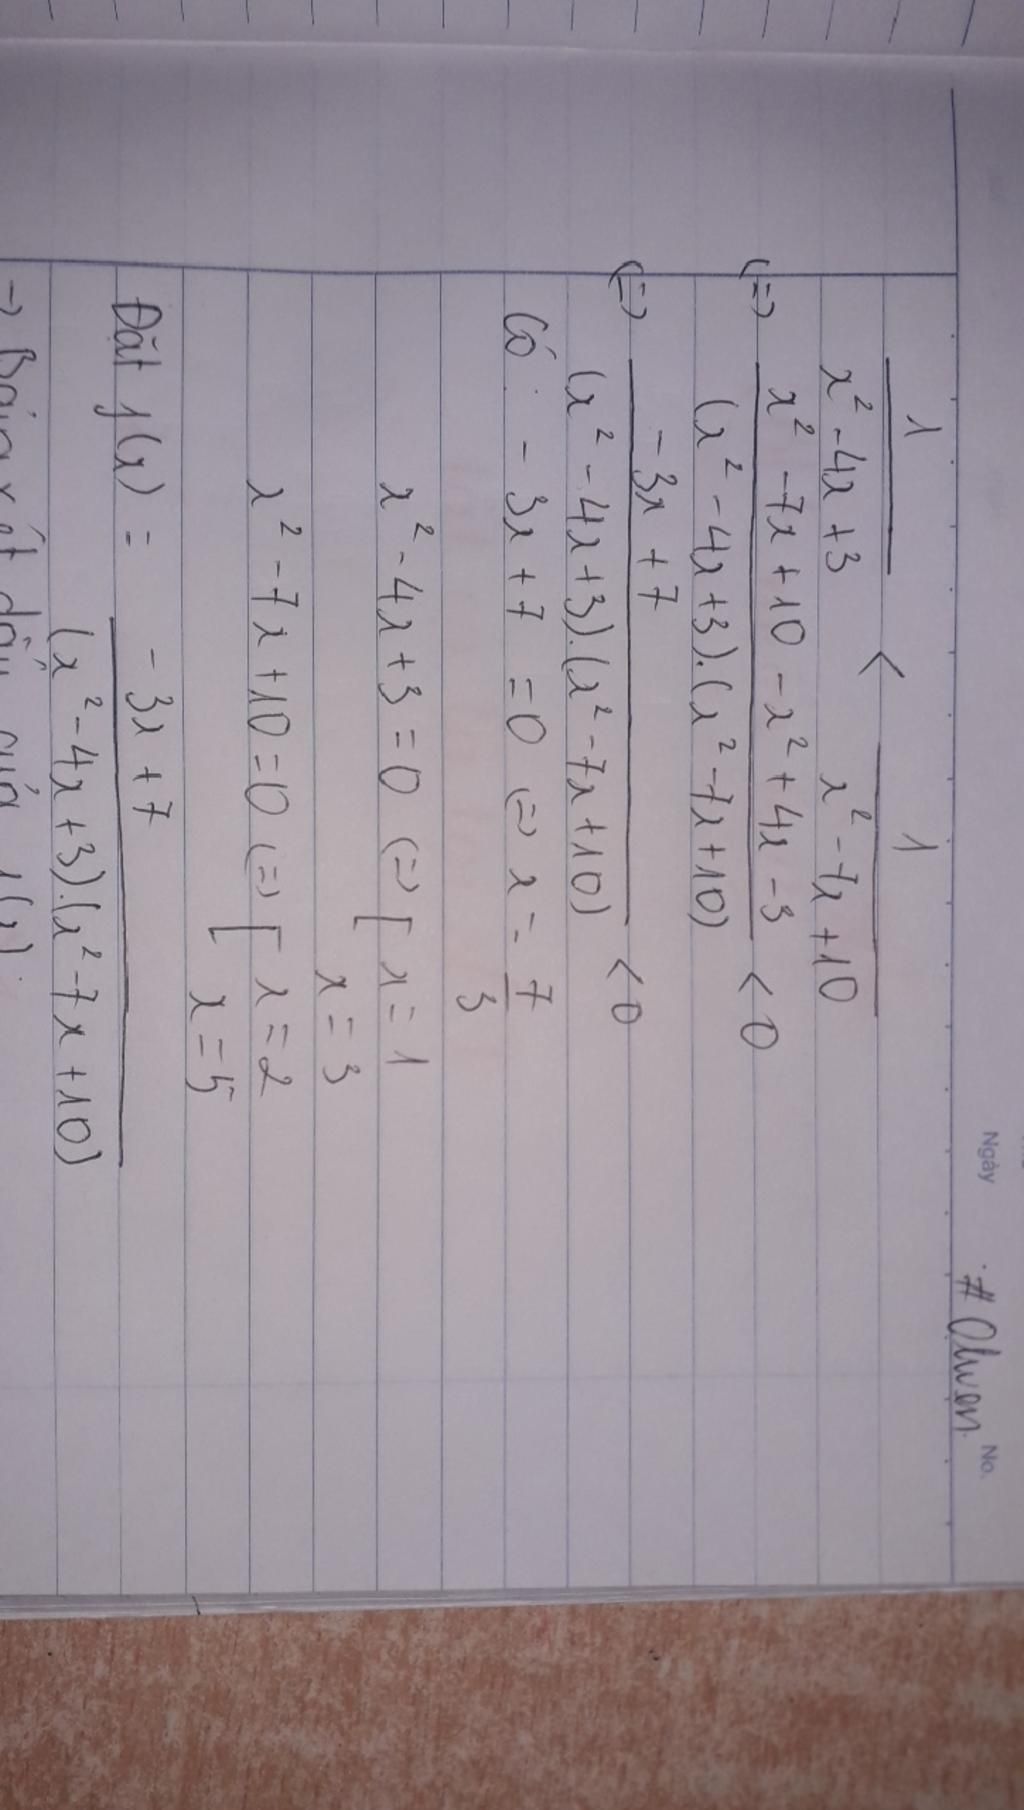 Ngày No.
# Olwen.
1/(x² - 4x + 3) < 1/(x² - 7x + 10)
(=) (x² - 7x + 10 - x² + 4x - 3)/((x² - 4x + 3).(x² - 7x + 10)) < 0
(=) (-3x + 7)/((x² - 4x + 3).(x² - 7x + 10)) < 0
Có: - 3x + 7 = 0 (=) x = 7/3
x² - 4x + 3 = 0 (=) [ x = 1
x = 3
x² - 7x + 10 = 0 (=) [ x = 2
x = 5
Đặt f(x) = (-3x + 7)/((x² - 4x + 3).(x² - 7x + 10))
→ Bảng xét dấu của f(x):